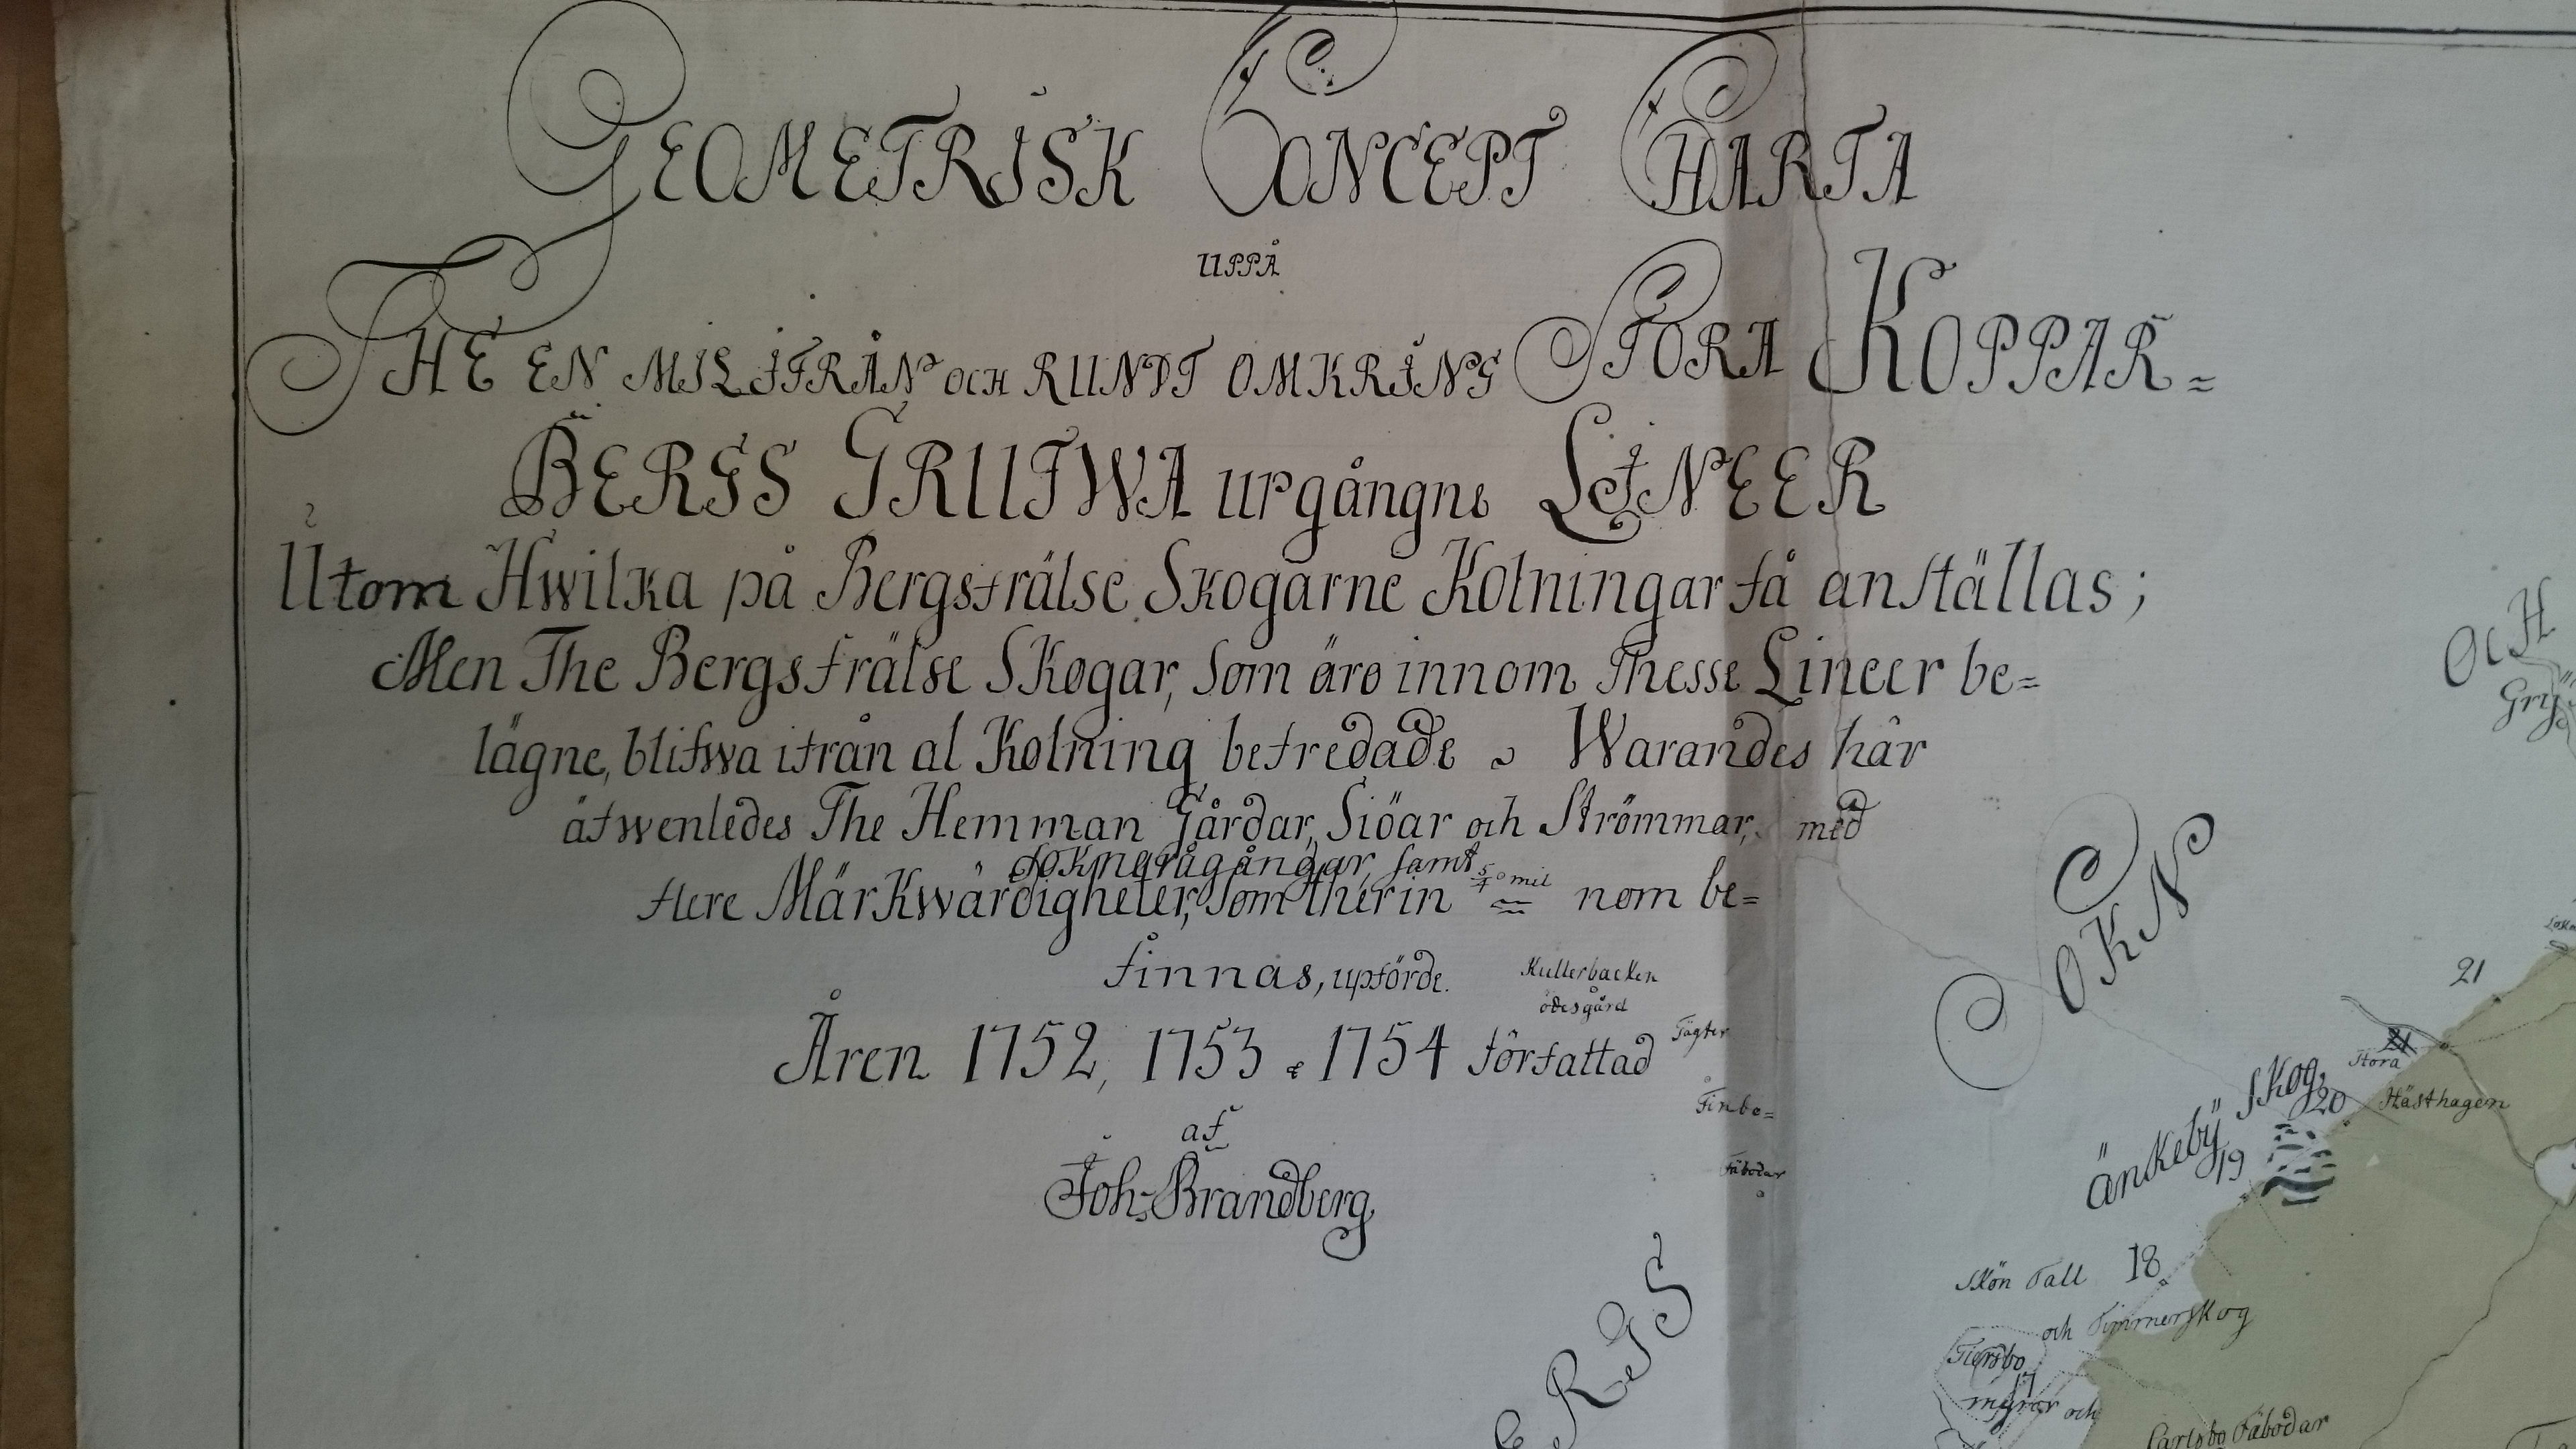 GEOMETRISK CONCEPT CHARTA
UPPÅ
THE EN MIL IFRÅN OCH RUNDT OMKRING STORA KOPPAR=
BERGS GRUFWA upgångne LINEER
Utom Hwilka på Bergsfrälse Skogarne Kolningar få anställas;
Men The Bergsfrälse Skogar, som äro innom Thesse Lineer be=
lägne, blifwa ifrån al Kolning befredade Warandes här
äfwenledes The Hemman Gårdar, Siöar och Strömmar, med
Soknarågångar, samt
flere Märkwärdigheter, som therin nom be=
5/4 mil
finnas, upförde.
Kullerbacken
ödesgård
Åren 1752, 1753 & 1754 författad
Tägter
Finbo=
fäbodar
af
Joh: Brandberg
OCH
SOKN
21
21
Stora
Hästhagen
änkebÿ skog
20
19
Skön Tall 18
och Timmerskog
17
myrar och
Carlsbo Fäbodar
ERGS